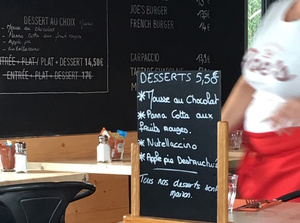 DESSERT AU CHOIX
* Mousse au chocolat
* Panna Cotta aux fruits rouges
* Apple pie
* Nutellaccino
ENTRÉE + PLAT / PLAT + DESSERT 14,50€
ENTRÉE + PLAT + DESSERT 17€
JOE'S BURGER
FRENCH BURGER
CARPACCIO
DESSERTS 5,50€
* Mousse au Chocolat
* Panna Cotta aux
fruits rouges.
* Nutellaccino
* Apple pie Destructuré
Tous nos desserts sont
maison.